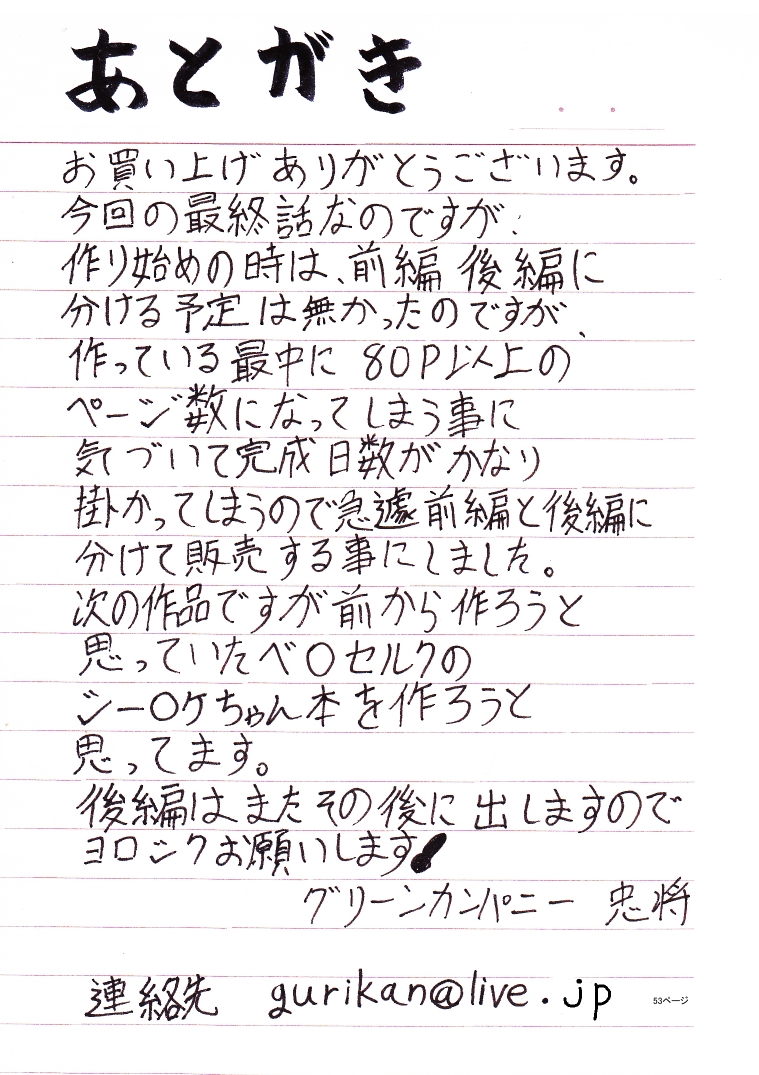 あとがき
お買い上げありがとうございます。
今回の最終話なのですが、
作り始めの時は、前編 後編に
分ける予定は無かったのですが、
作っている最中に 80P以上の
ページ数になってしまう事に
気づいて完成日数がかなり
掛かってしまうので急遽前編と後編に
分けて販売する事にしました。
次の作品ですが前から作ろうと
思っていたベ〇セルクの
シー〇ケちゃん本を作ろうと
思ってます。
後編はまたその後に出しますので
ヨロシクお願いします!
グリーンカンパニー 忠将
連絡先 gurikan@live.jp
53ページ